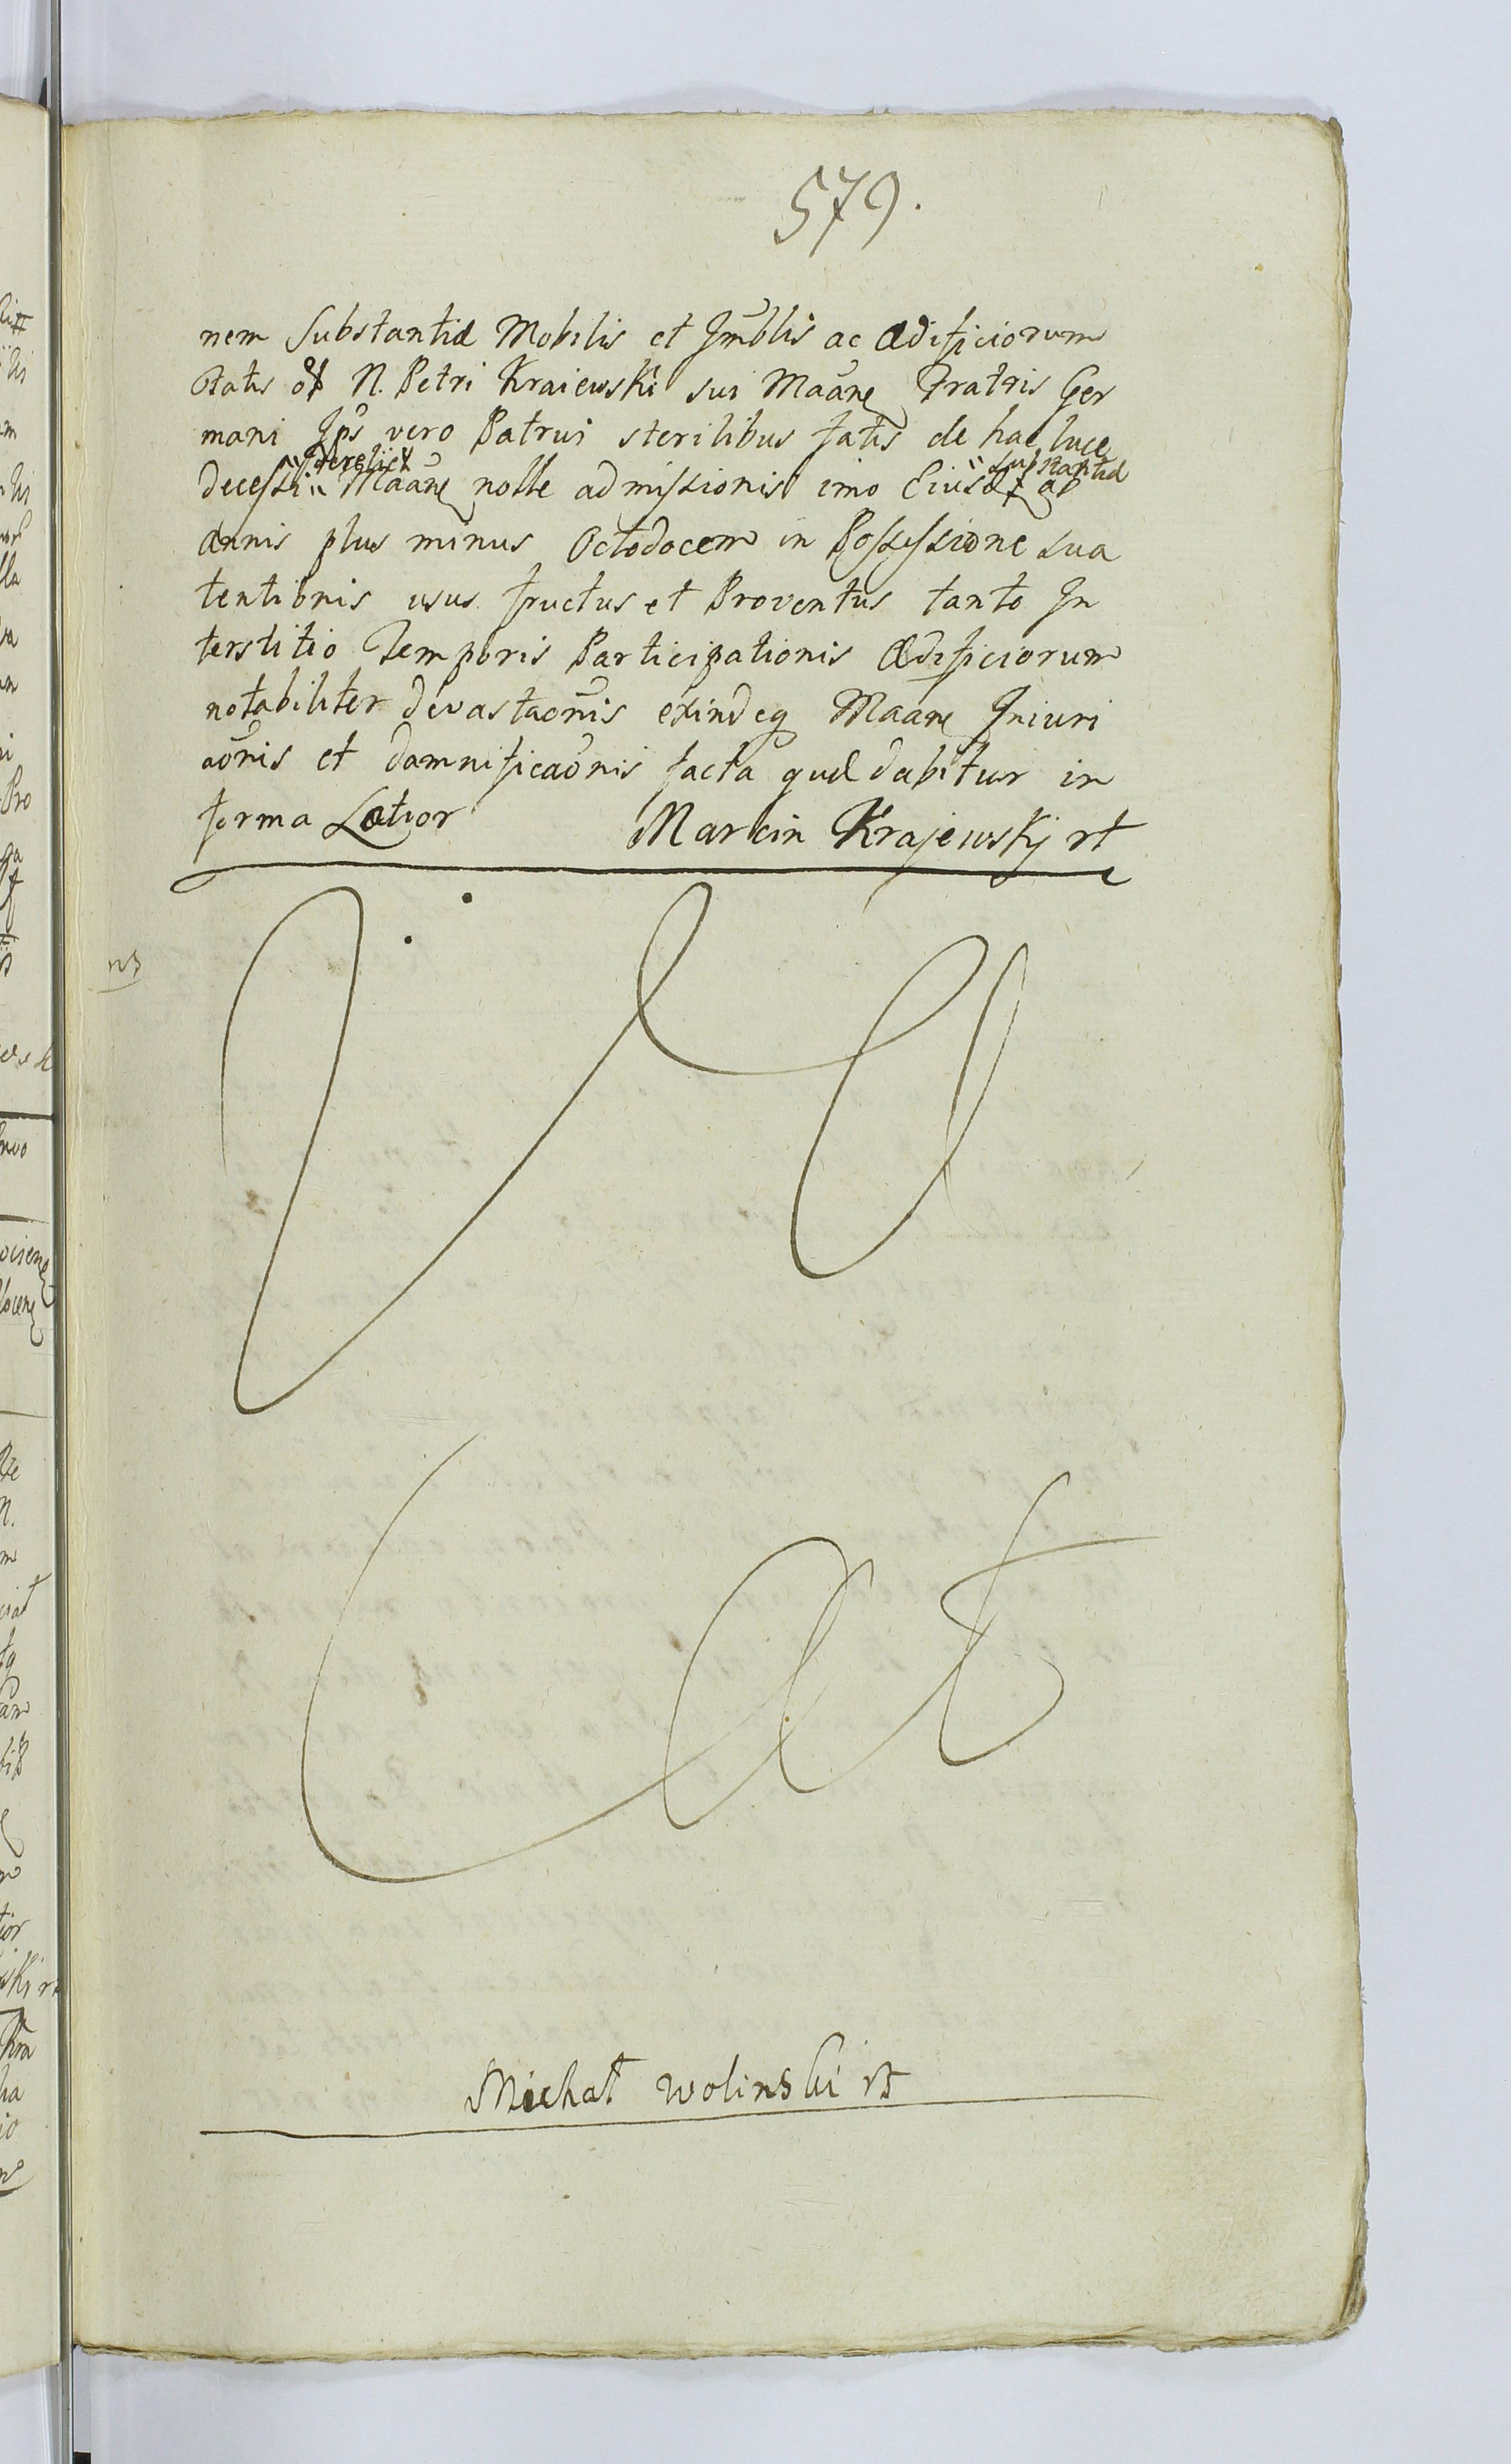 579.
nem Substantiæ Mobilis et Immblis ac Ædificiorum
N. Petri Kraiewski sui Maãne Fratris Ger
mani Jps vero Patrui sterilibus fatis de hac luce
decessi " derelict Maãne nolle admissionis imo Eiusd " substantiæ ab
annis plus minus Octodocem in Possessione sua
tentionis usus fructus et Proventus tanto In
terstitio Temporis Participationis Ædificiorum
notabiliter devastaõnis exindeq Maãne Iniuri
aõnis et damnificaõnis facta quæ dabitur in
forma Latior Marcin Krajewskj rt
Vacat
Michał Wolinski rt